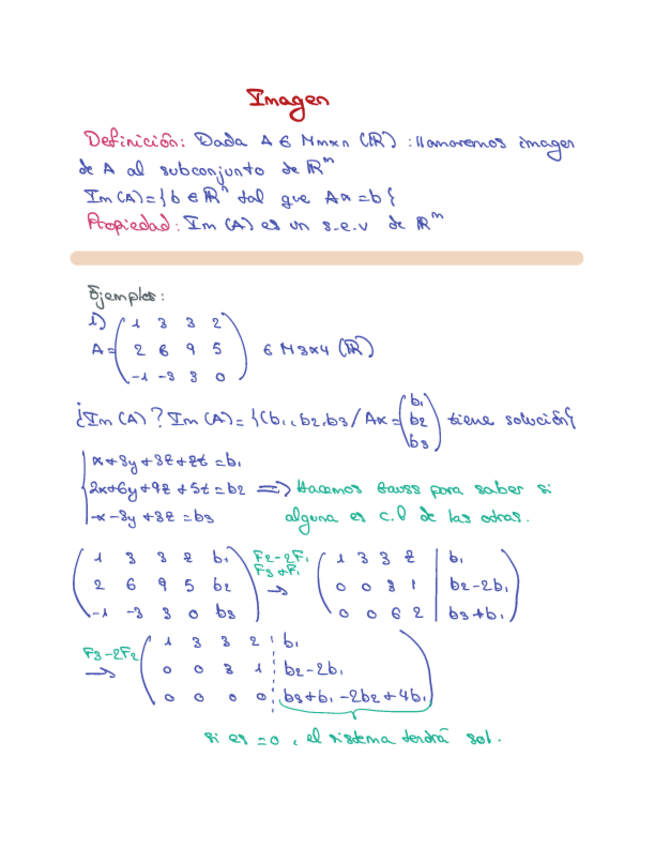 Imagen
Definición: Dada A ∈ Mmxn (ℝ) : llamaremos imagen
de A al subconjunto de ℝᵐ
Im (A) = { b ∈ ℝⁿ tal que Ax = b {
Propiedad: Im (A) es un s.e.v de ℝᵐ
Ejemplos:
1) A = ( 1 3 3 2
2 6 9 5
-1 -3 3 0 ) ∈ M3x4 (ℝ)
¿Im (A)? Im (A) = { (b₁, b2, b3 / Ax = ( b₁ b2 b3 ) tiene solución {
x + 3y + 3z + 2t = b₁
2x + 6y + 9z + 5t = b2 => Hacemos Gauss para saber si
-x - 3y + 3z = b3 alguna es c.l de las otras.
( 1 3 3 2 b₁
2 6 9 5 b2
-1 -3 3 0 b3 )
F2-2F₁
F3+F₁
→
( 1 3 3 2 | b₁
0 0 3 1 | b2-2b₁
0 0 6 2 | b3+b₁ )
F3-2F2
→
( 1 3 3 2 | b₁
0 0 3 1 | b2-2b₁
0 0 0 0 | b3+b₁-2b2+4b₁ )
si es =0, el sistema tendrá sol.